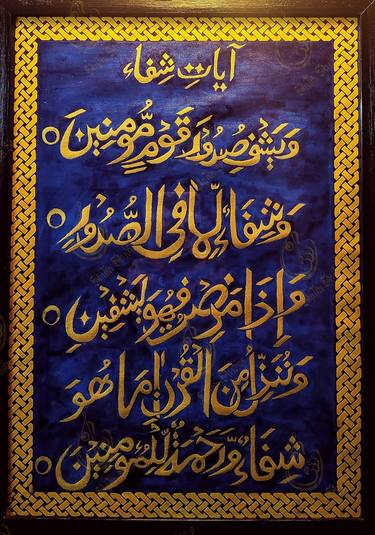 آیاتِ شِفاء
وَيَشْفِ صُدُورَ قَوْمٍ مُّؤْمِنِينَ
وَشِفَاءٌ لِّمَا فِي الصُّدُورِ
وَإِذَا مَرِضْتُ فَهُوَ يَشْفِينِ
وَنُنَزِّلُ مِنَ الْقُرْآنِ مَا هُوَ
شِفَاءٌ وَّرَحْمَةٌ لِّلْمُؤْمِنِينَ